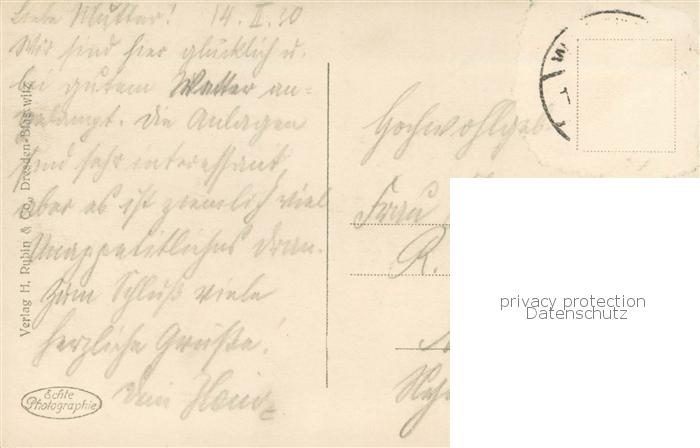 Liebe Mutter! 14. II. 30
Wir sind hier glücklich u.
bei gutem Wetter an-
gelangt. Die Anlagen
sind sehr interessant,
aber es ist ziemlich viel
Unappetitliches dran.
Zum Schluß viele
herzliche Grüße!
Dein Hein-
Verlag H. Rubin & Co., Dresden-Blasewitz
Echte
Photographie
Hochwohlgeb.
Frau
R.
privacy protection
Datenschutz